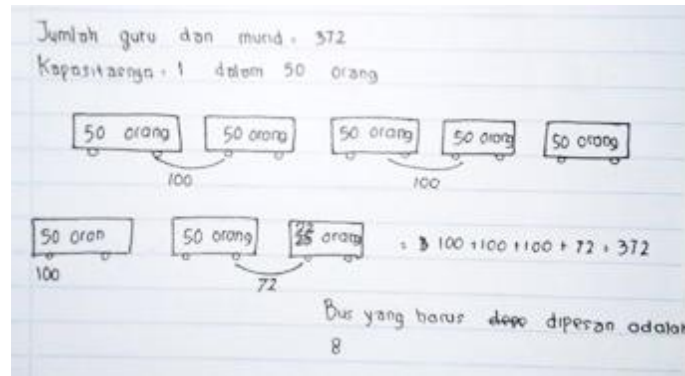 Jumlah guru dan murid = 372
Kapasitasnya = 1 dalam 50 orang
50 orang 50 orang 50 orang 50 orang 50 orang
100 100
50 oran 50 orang 22 orang = 100 +100 +100 + 72 = 372
100 72
Bus yang harus dipesan adalah
8